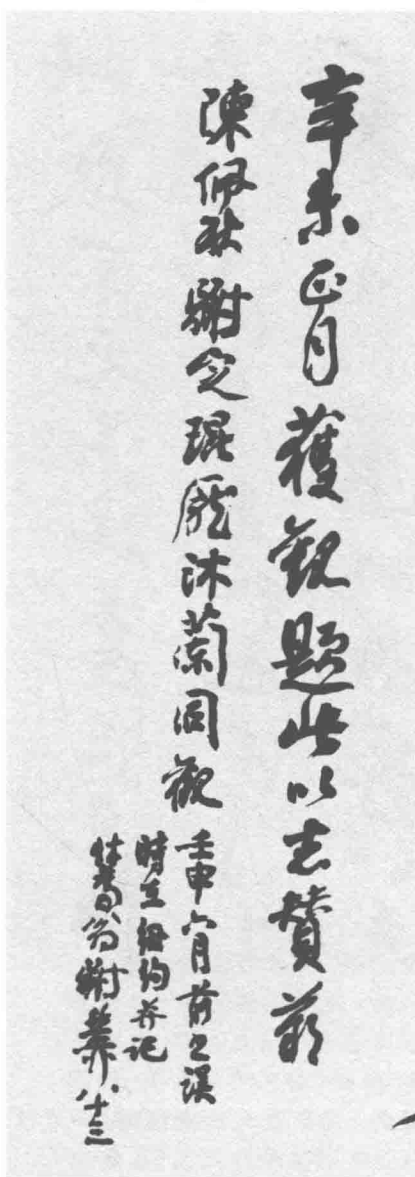 辛未正月獲觀題此以志贊歎
陳佩秋謝定琨龐沐蘭同觀
壬申六月前之誤
時在紐約并記
壯暮翁稚柳八十三